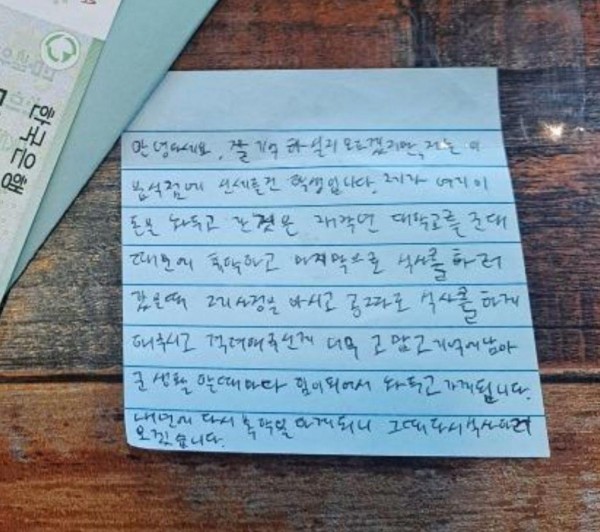 한국은행
안녕하세요, 잘 기억 하실지 모르겠지만, 저는 이
음식점에 신세를진 학생입니다. 제가 여기 이
돈을 놔두고 간것은 재작년 대학교를 군대
때문에 휴학하고 마지막으로 식사를 하러
갔을때 제 사정을 아시고 공짜로 식사를 하게
해주시고 격려해주신게 너무 고맙고 기억에 남아
군 생활 할때마다 힘이되어서 놔두고 가게됩니다.
내년에 다시 복학을 하게되니 그때 다시 식사하러
오겠습니다.